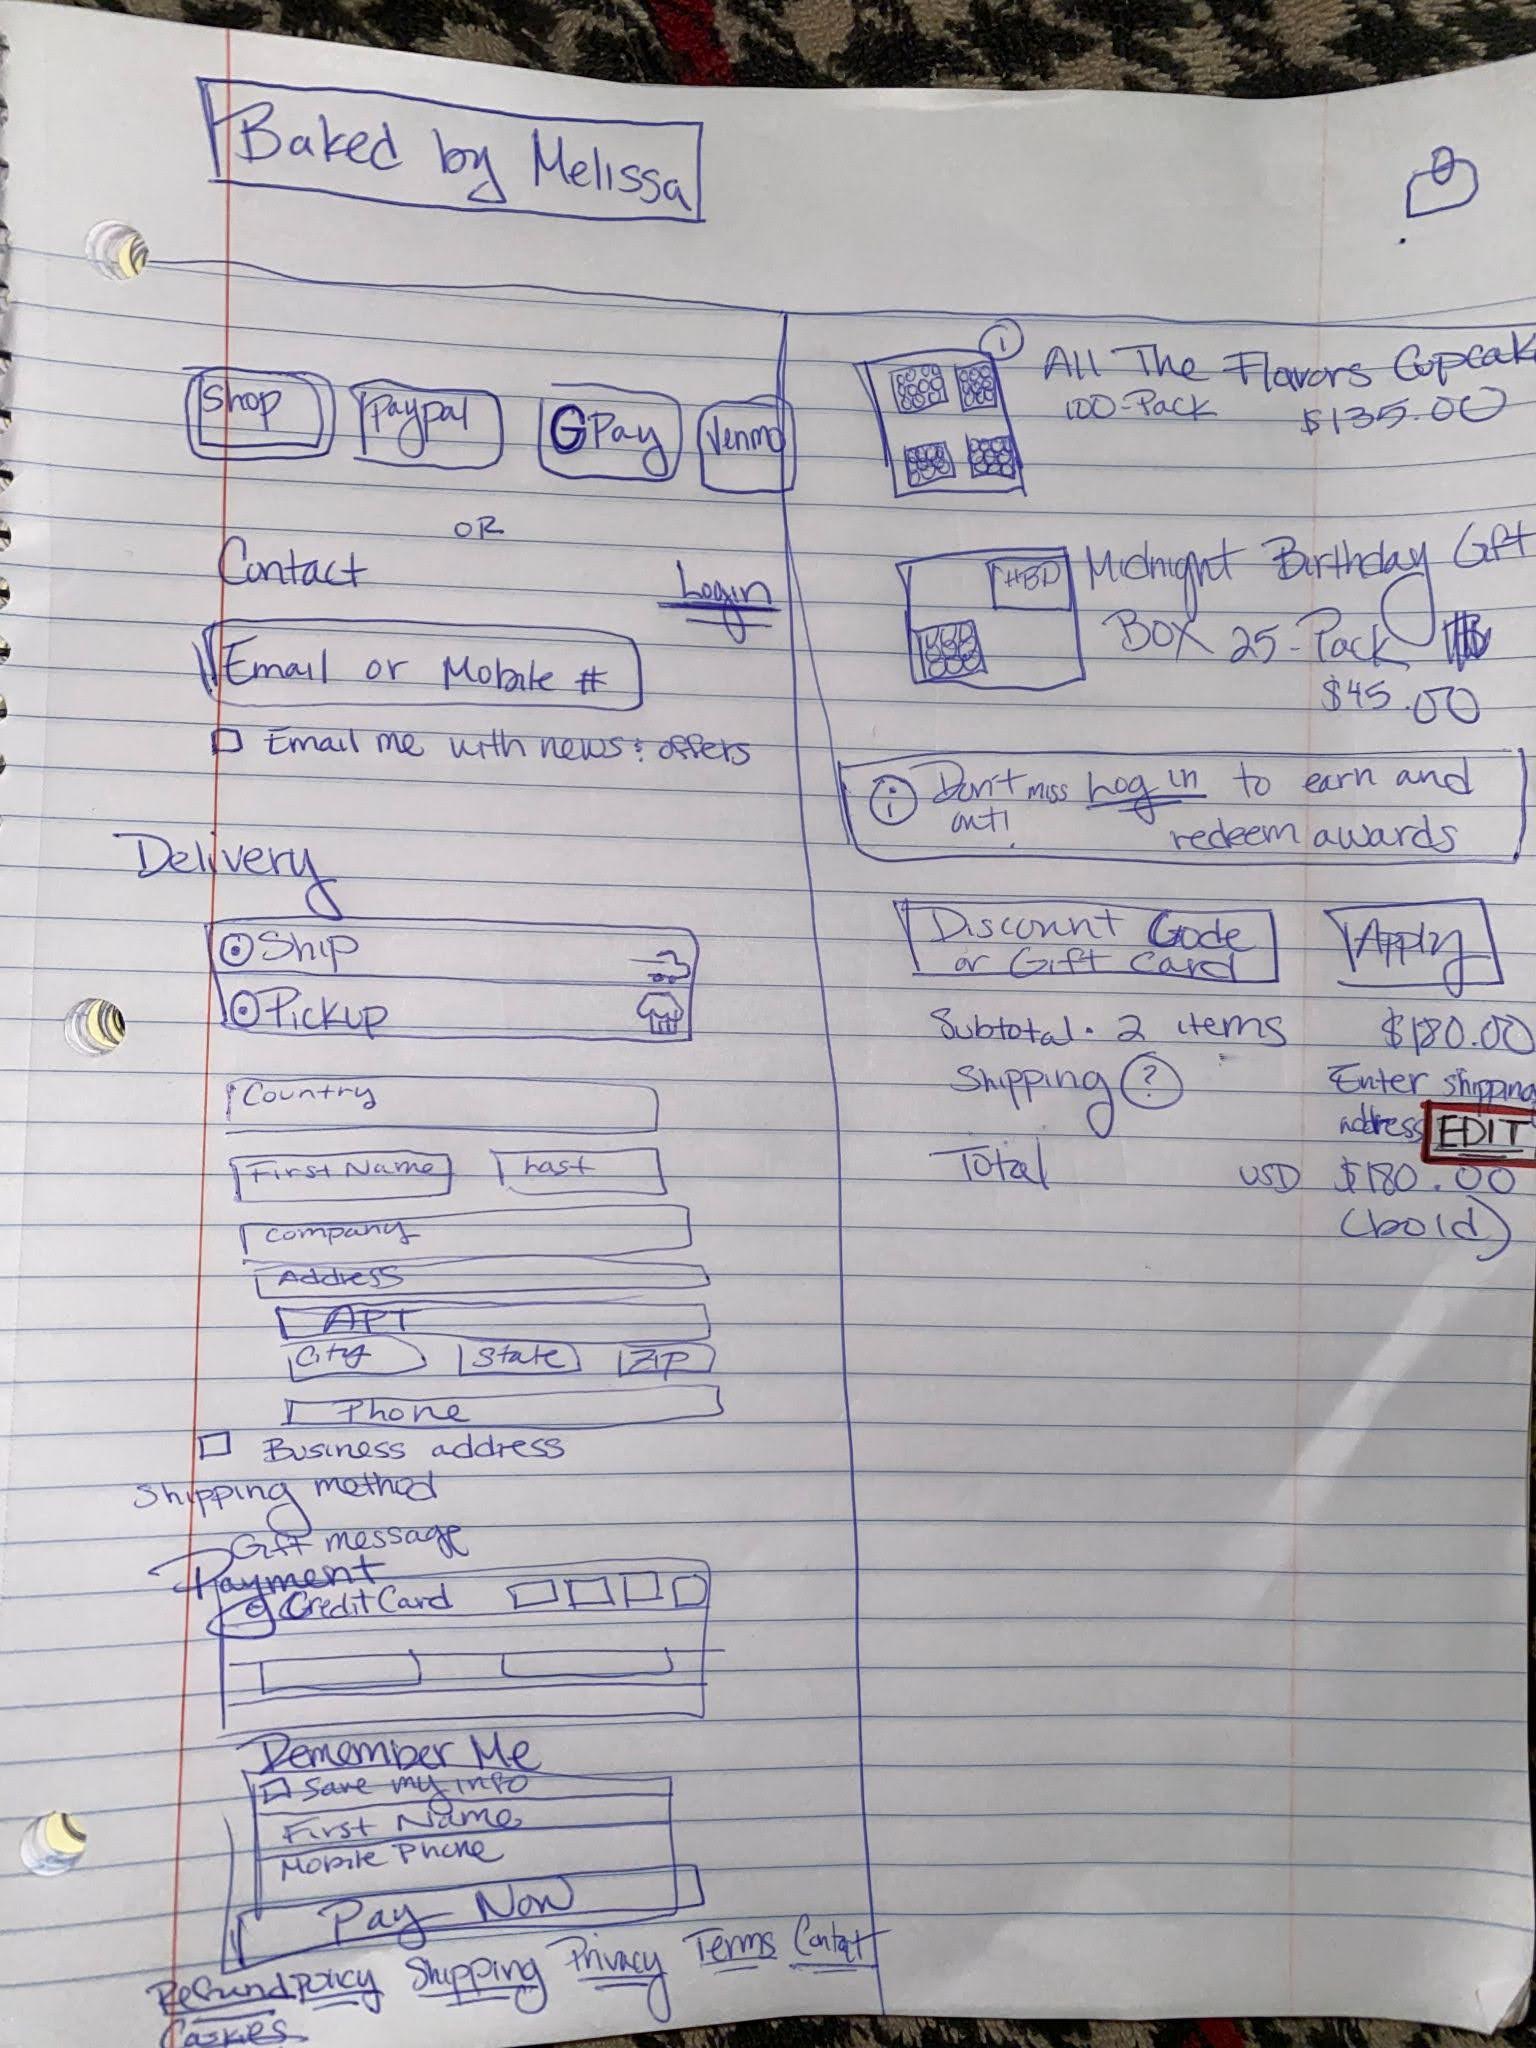 Baked by Melissa
Shop
Paypal
GPay
Venmo
OR
Contact
Login
Email or Mobile #
Email me with news & offers
Delivery
Ship
Pickup
Country
First Name
Last
Company
Address
APT
City
State
Zip
Phone
Business address
Shipping method
Gift message
Payment
Credit Card
Remember Me
Save my info
First Name
Mobile Phone
Pay Now
Refund policy Shipping Privacy Terms Contact
Cookies
1
All The Flavors Cupcak
100-Pack $135.00
HBD
Midnight Birthday Gift
BOX 25-Pack
$45.00
i Don't miss Log in to earn and
out! redeem awards
Discount Code
or Gift Card
Apply
Subtotal · 2 items $180.00
Shipping ? Enter shipping
address EDIT
Total USD $180.00
(bold)